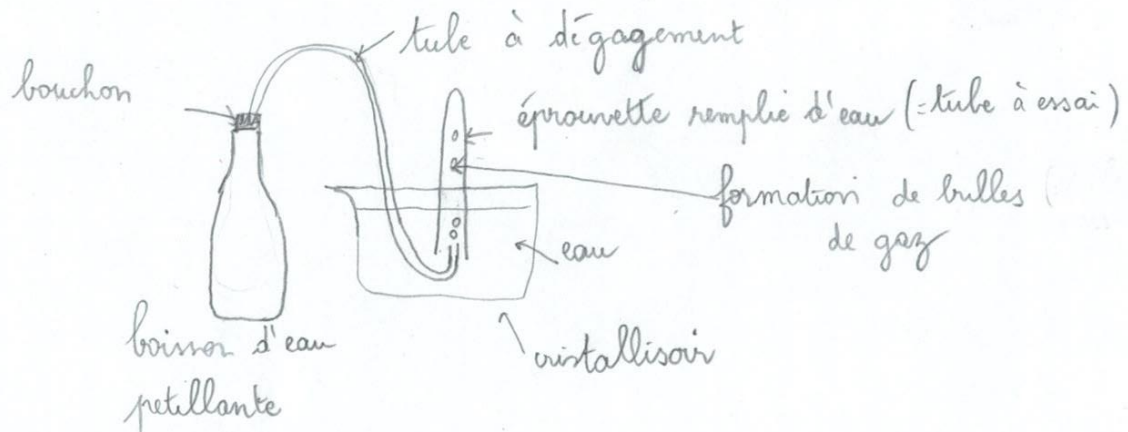 tube à dégagement
bouchon
éprouvette remplie d'eau (=tube à essai)
formation de bulles
de gaz
eau
cristallisoir
boisson d'eau
petillante